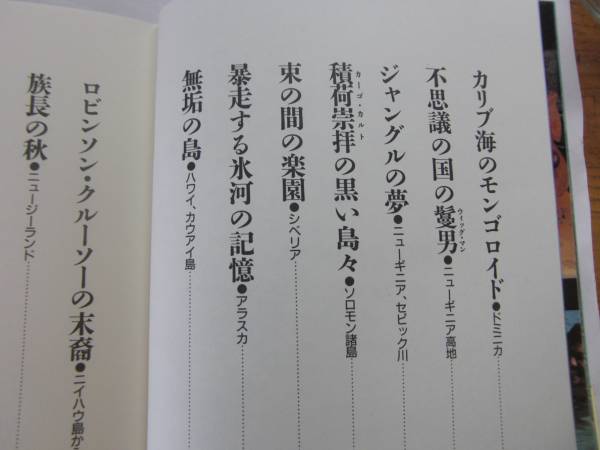 カリブ海のモンゴロイド●ドミニカ………
不思議の国の鬘男●ニューギニア高地………
ウイッグ・マン
ジャングルの夢●ニューギニア、セピック川………
積荷崇拝の黒い島々●ソロモン諸島………
カーゴ・カルト
束の間の楽園●シベリア………
暴走する氷河の記憶●アラスカ………
無垢の島●ハワイ、カウアイ島………
ロビンソン・クルーソーの末裔●ニイハウ島か
族長の秋●ニュージーランド………